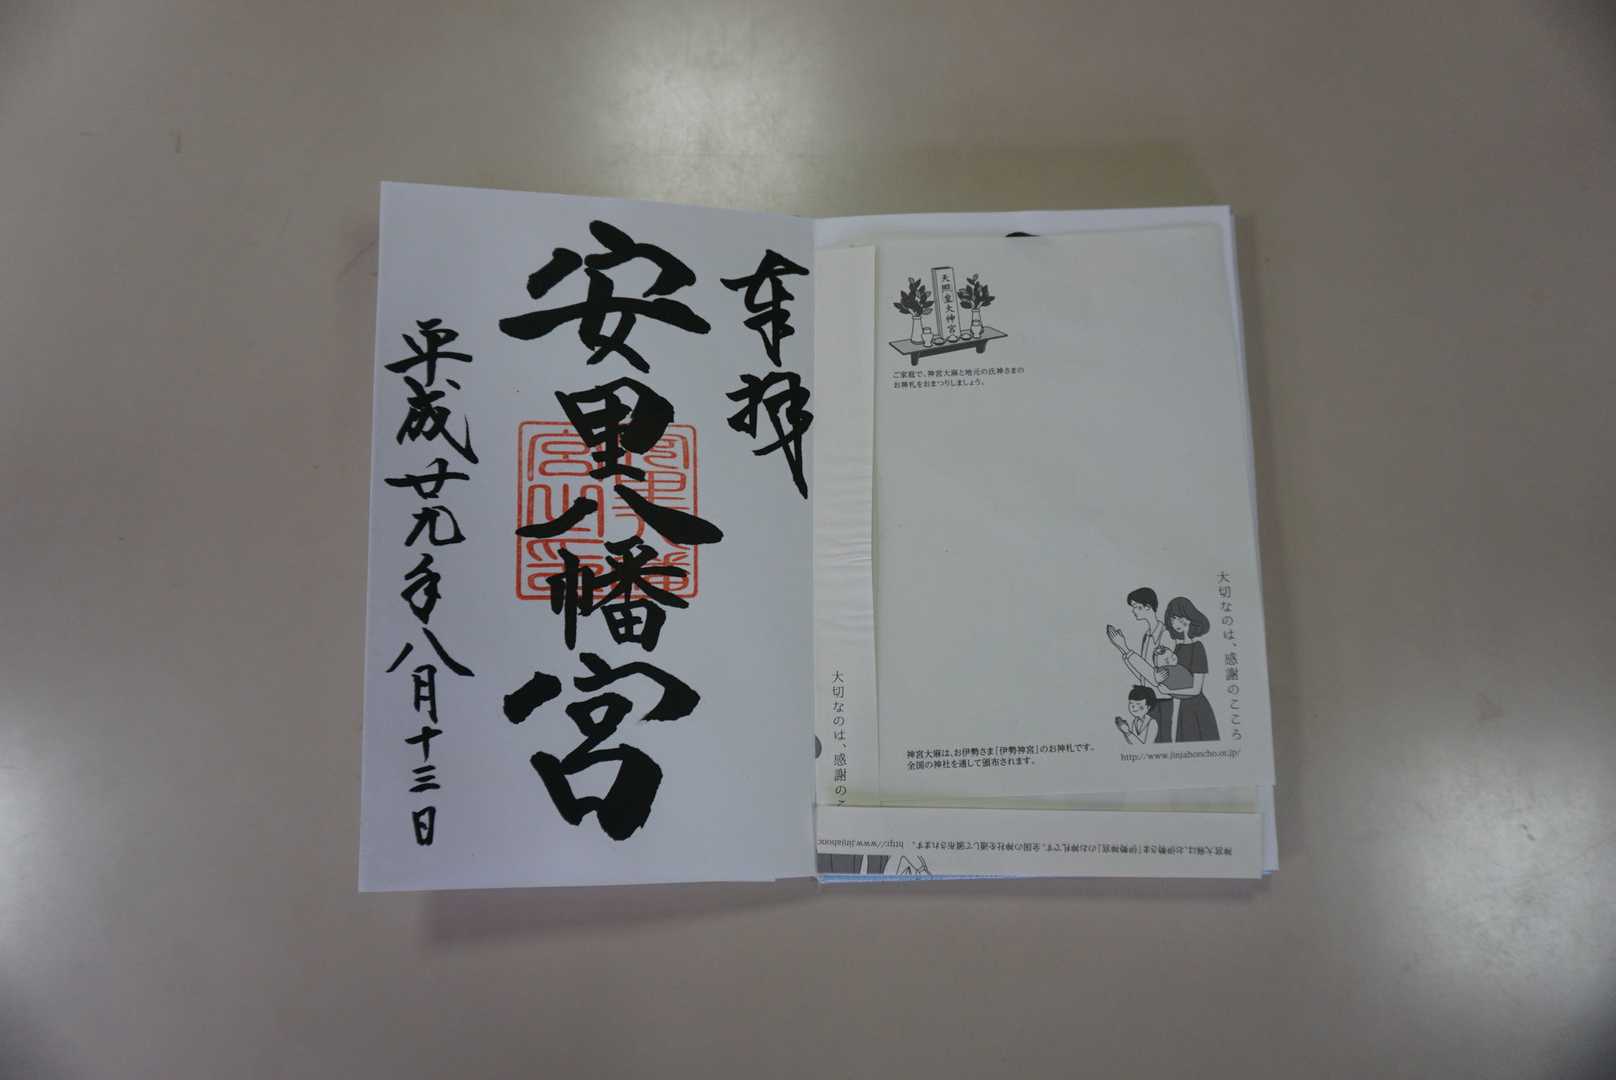 奉拝
安里八幡宮
平成廿九年八月十三日
天照皇大神宮
ご家庭で、神宮大麻と地元の氏神さまの
お神札をおまつりしましょう。
大切なのは、感謝のこころ
神宮大麻は、お伊勢さま「伊勢神宮」のお神札です。
全国の神社を通して頒布されます。
http://www.jinjahoncho.or.jp/
大切なのは、感謝のこ
神宮大麻は、お伊勢さま「伊勢神宮」のお神札です。全国の神社を通して頒布されます。 http://www.jinjahonc